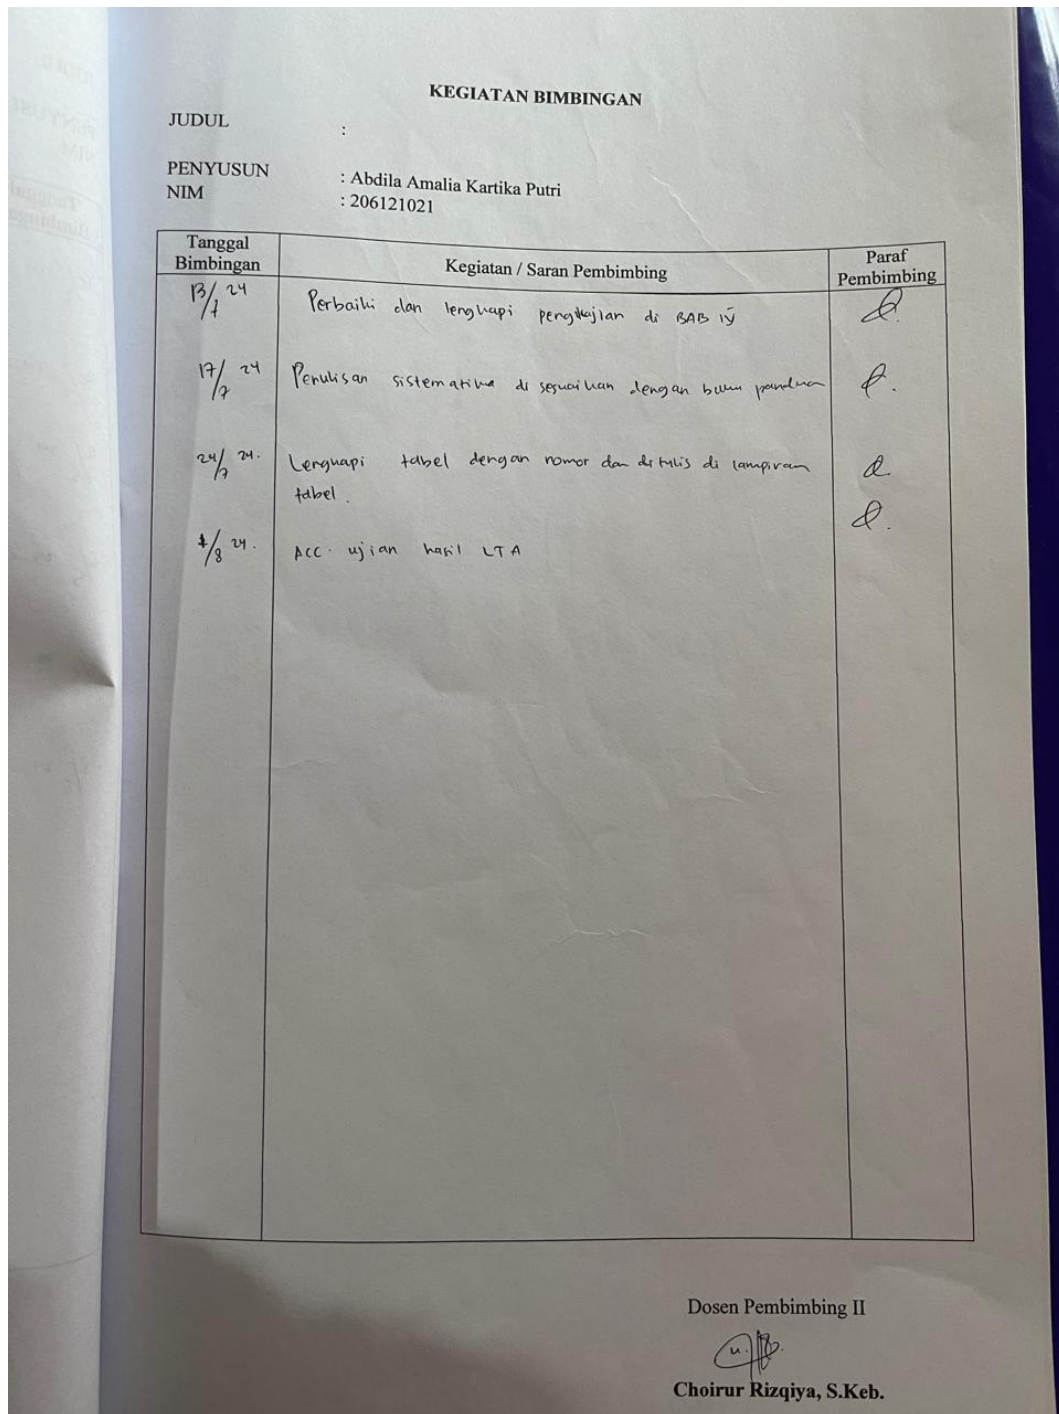 KEGIATAN BIMBINGAN
JUDUL :
PENYUSUN : Abdila Amalia Kartika Putri
NIM : 206121021
Tanggal Bimbingan Kegiatan / Saran Pembimbing Paraf Pembimbing
13/7 24 Perbaiki dan lengkapi pengkajian di BAB IV
17/7 24 Penulisan sistematika di sesuaikan dengan buku panduan
24/7 24. Lengkapi tabel dengan nomor dan di tulis di lampiran
tabel.
/8 24. ACC. ujian hasil LTA
Dosen Pembimbing II
Choirur Rizqiya, S.Keb.